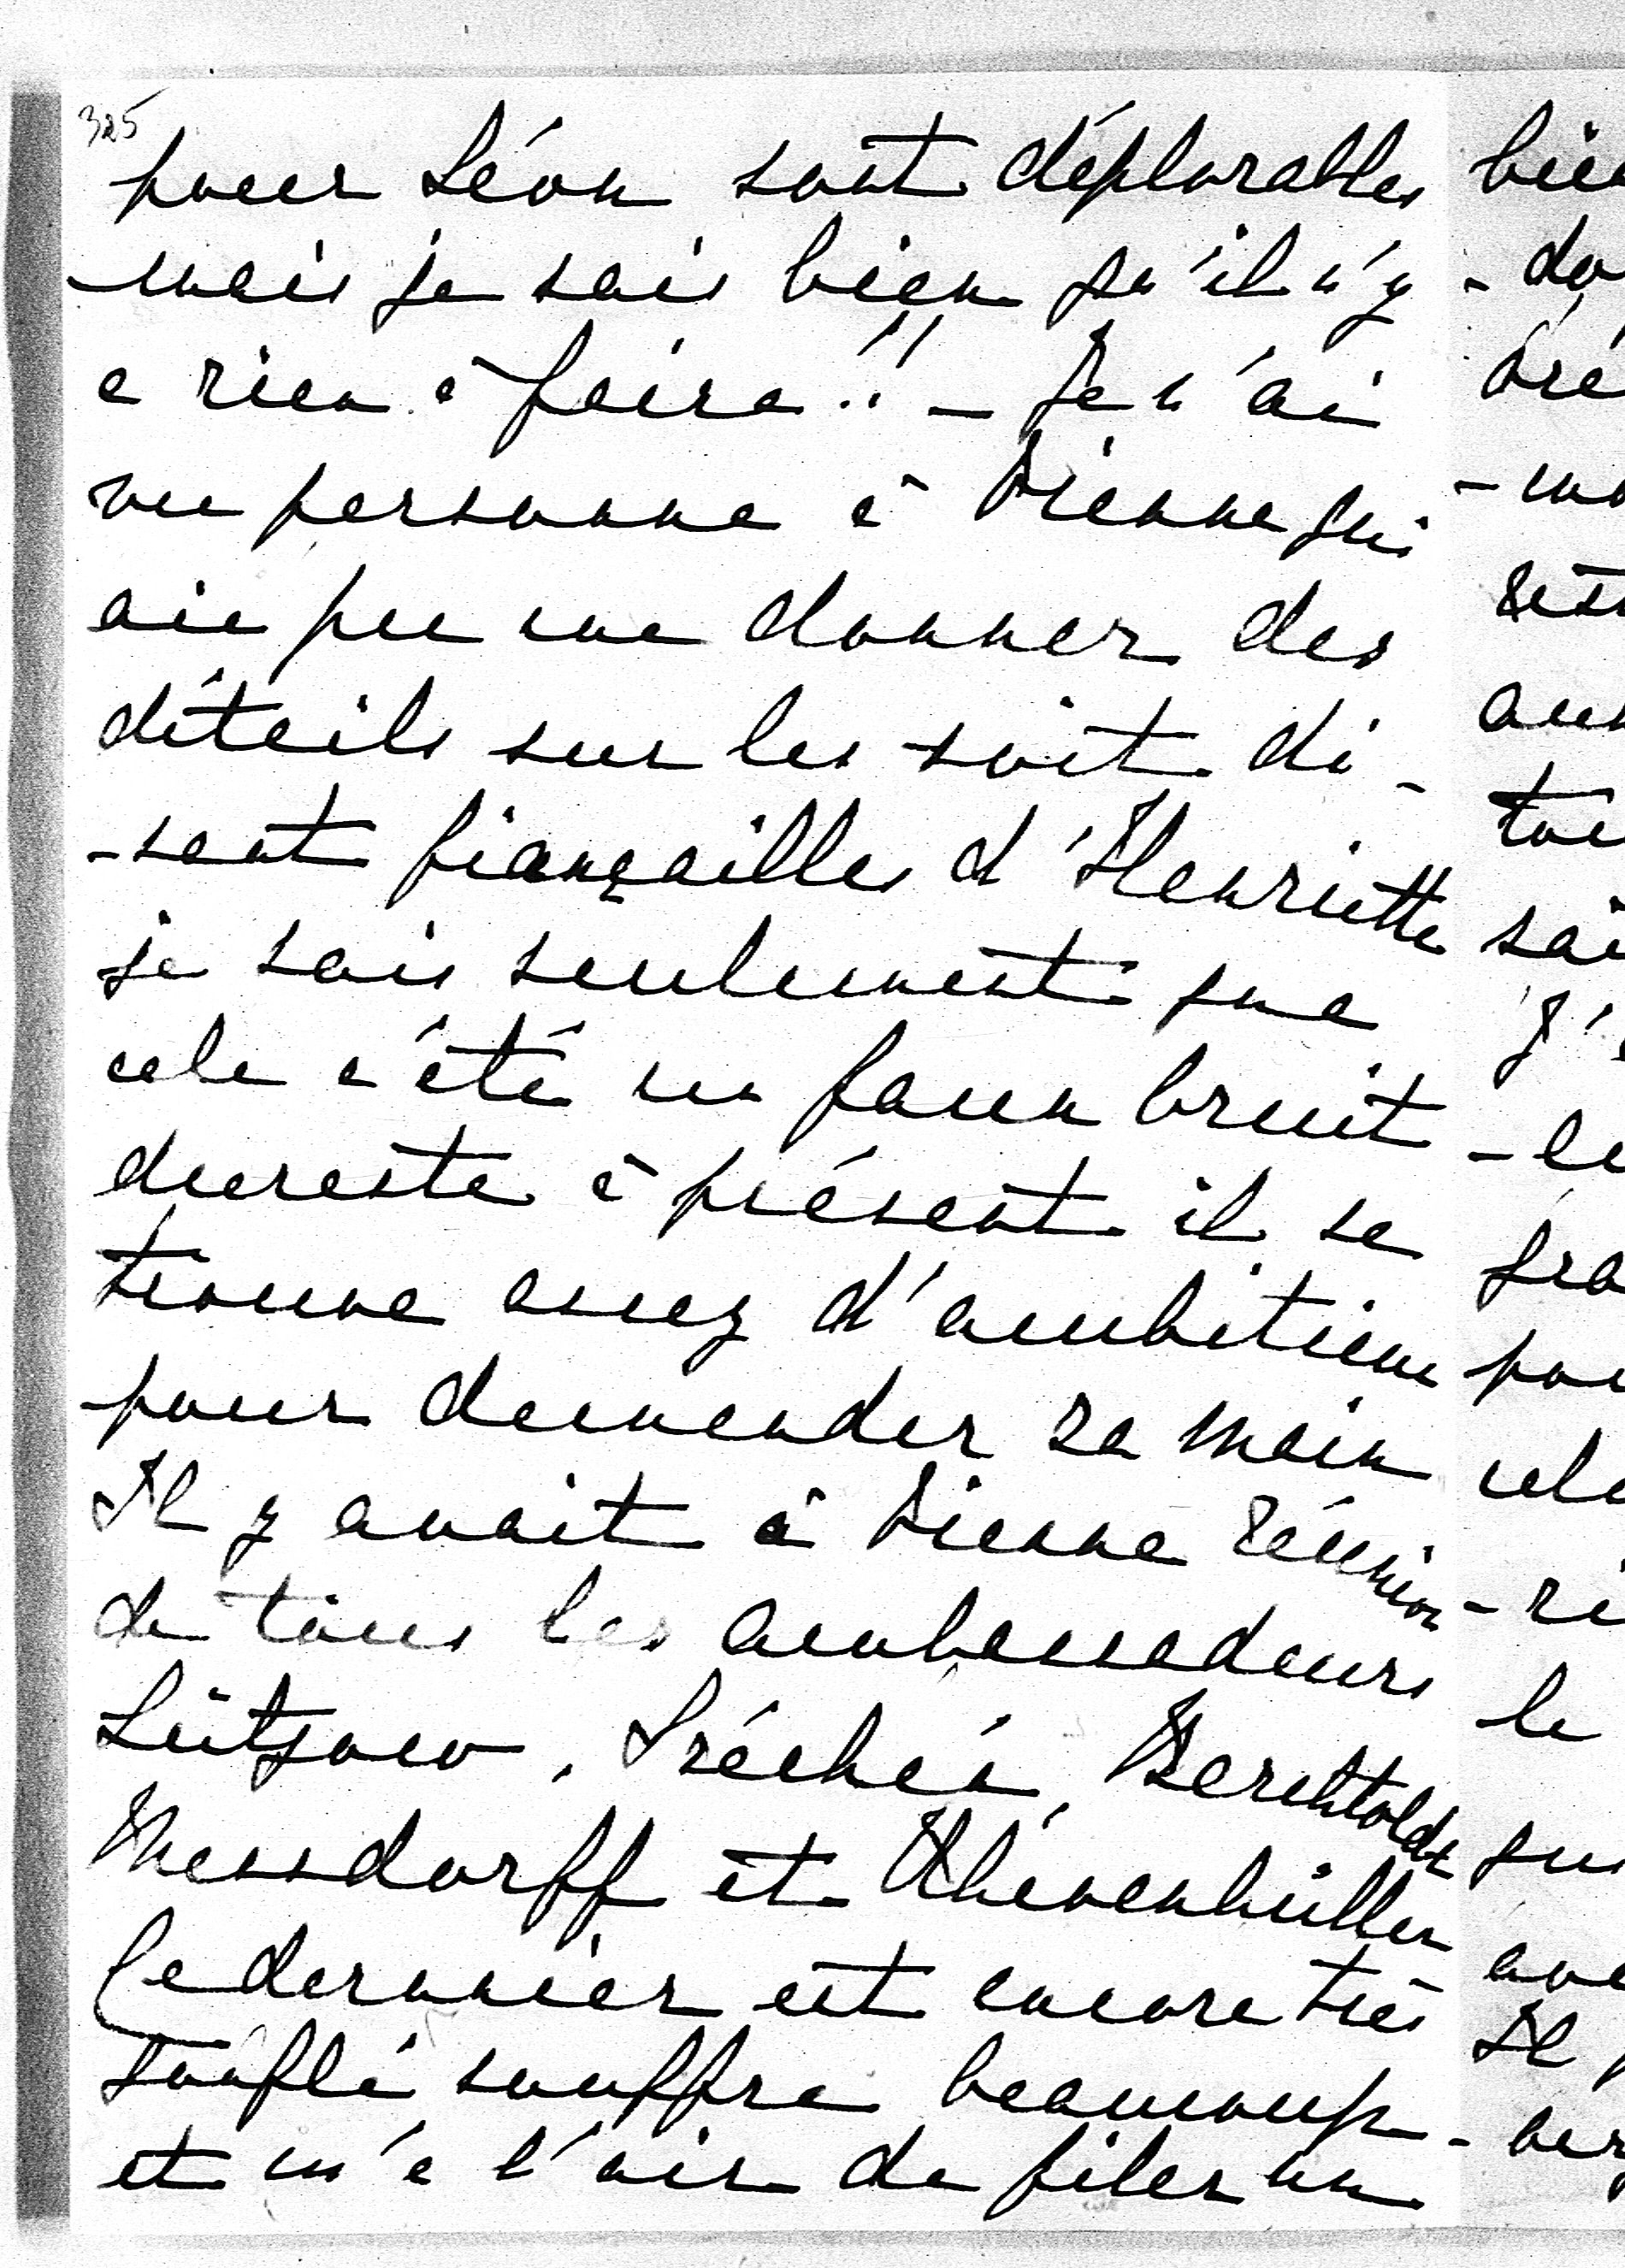 325
pour Léon sont déplorables
mais je sais bien qu'il n'y
a rien à faire!! – Je n'ai
vu personne à Vienne qui
aie pu me donner des
détails sur les soit di-
-sant fiançailles d'Henriette
je sais seulement que
cela a été un faux bruit
dureste à présent il se
trouve assez d'ambitieux
pour demander sa main
Il y avait à Vienne réunion
de tous les ambassadeurs
Lützow, Berchtold
et Khevenhüller
Ce dernier est encore très
souflé souffre beaucoup
et m'a l'air de filer un